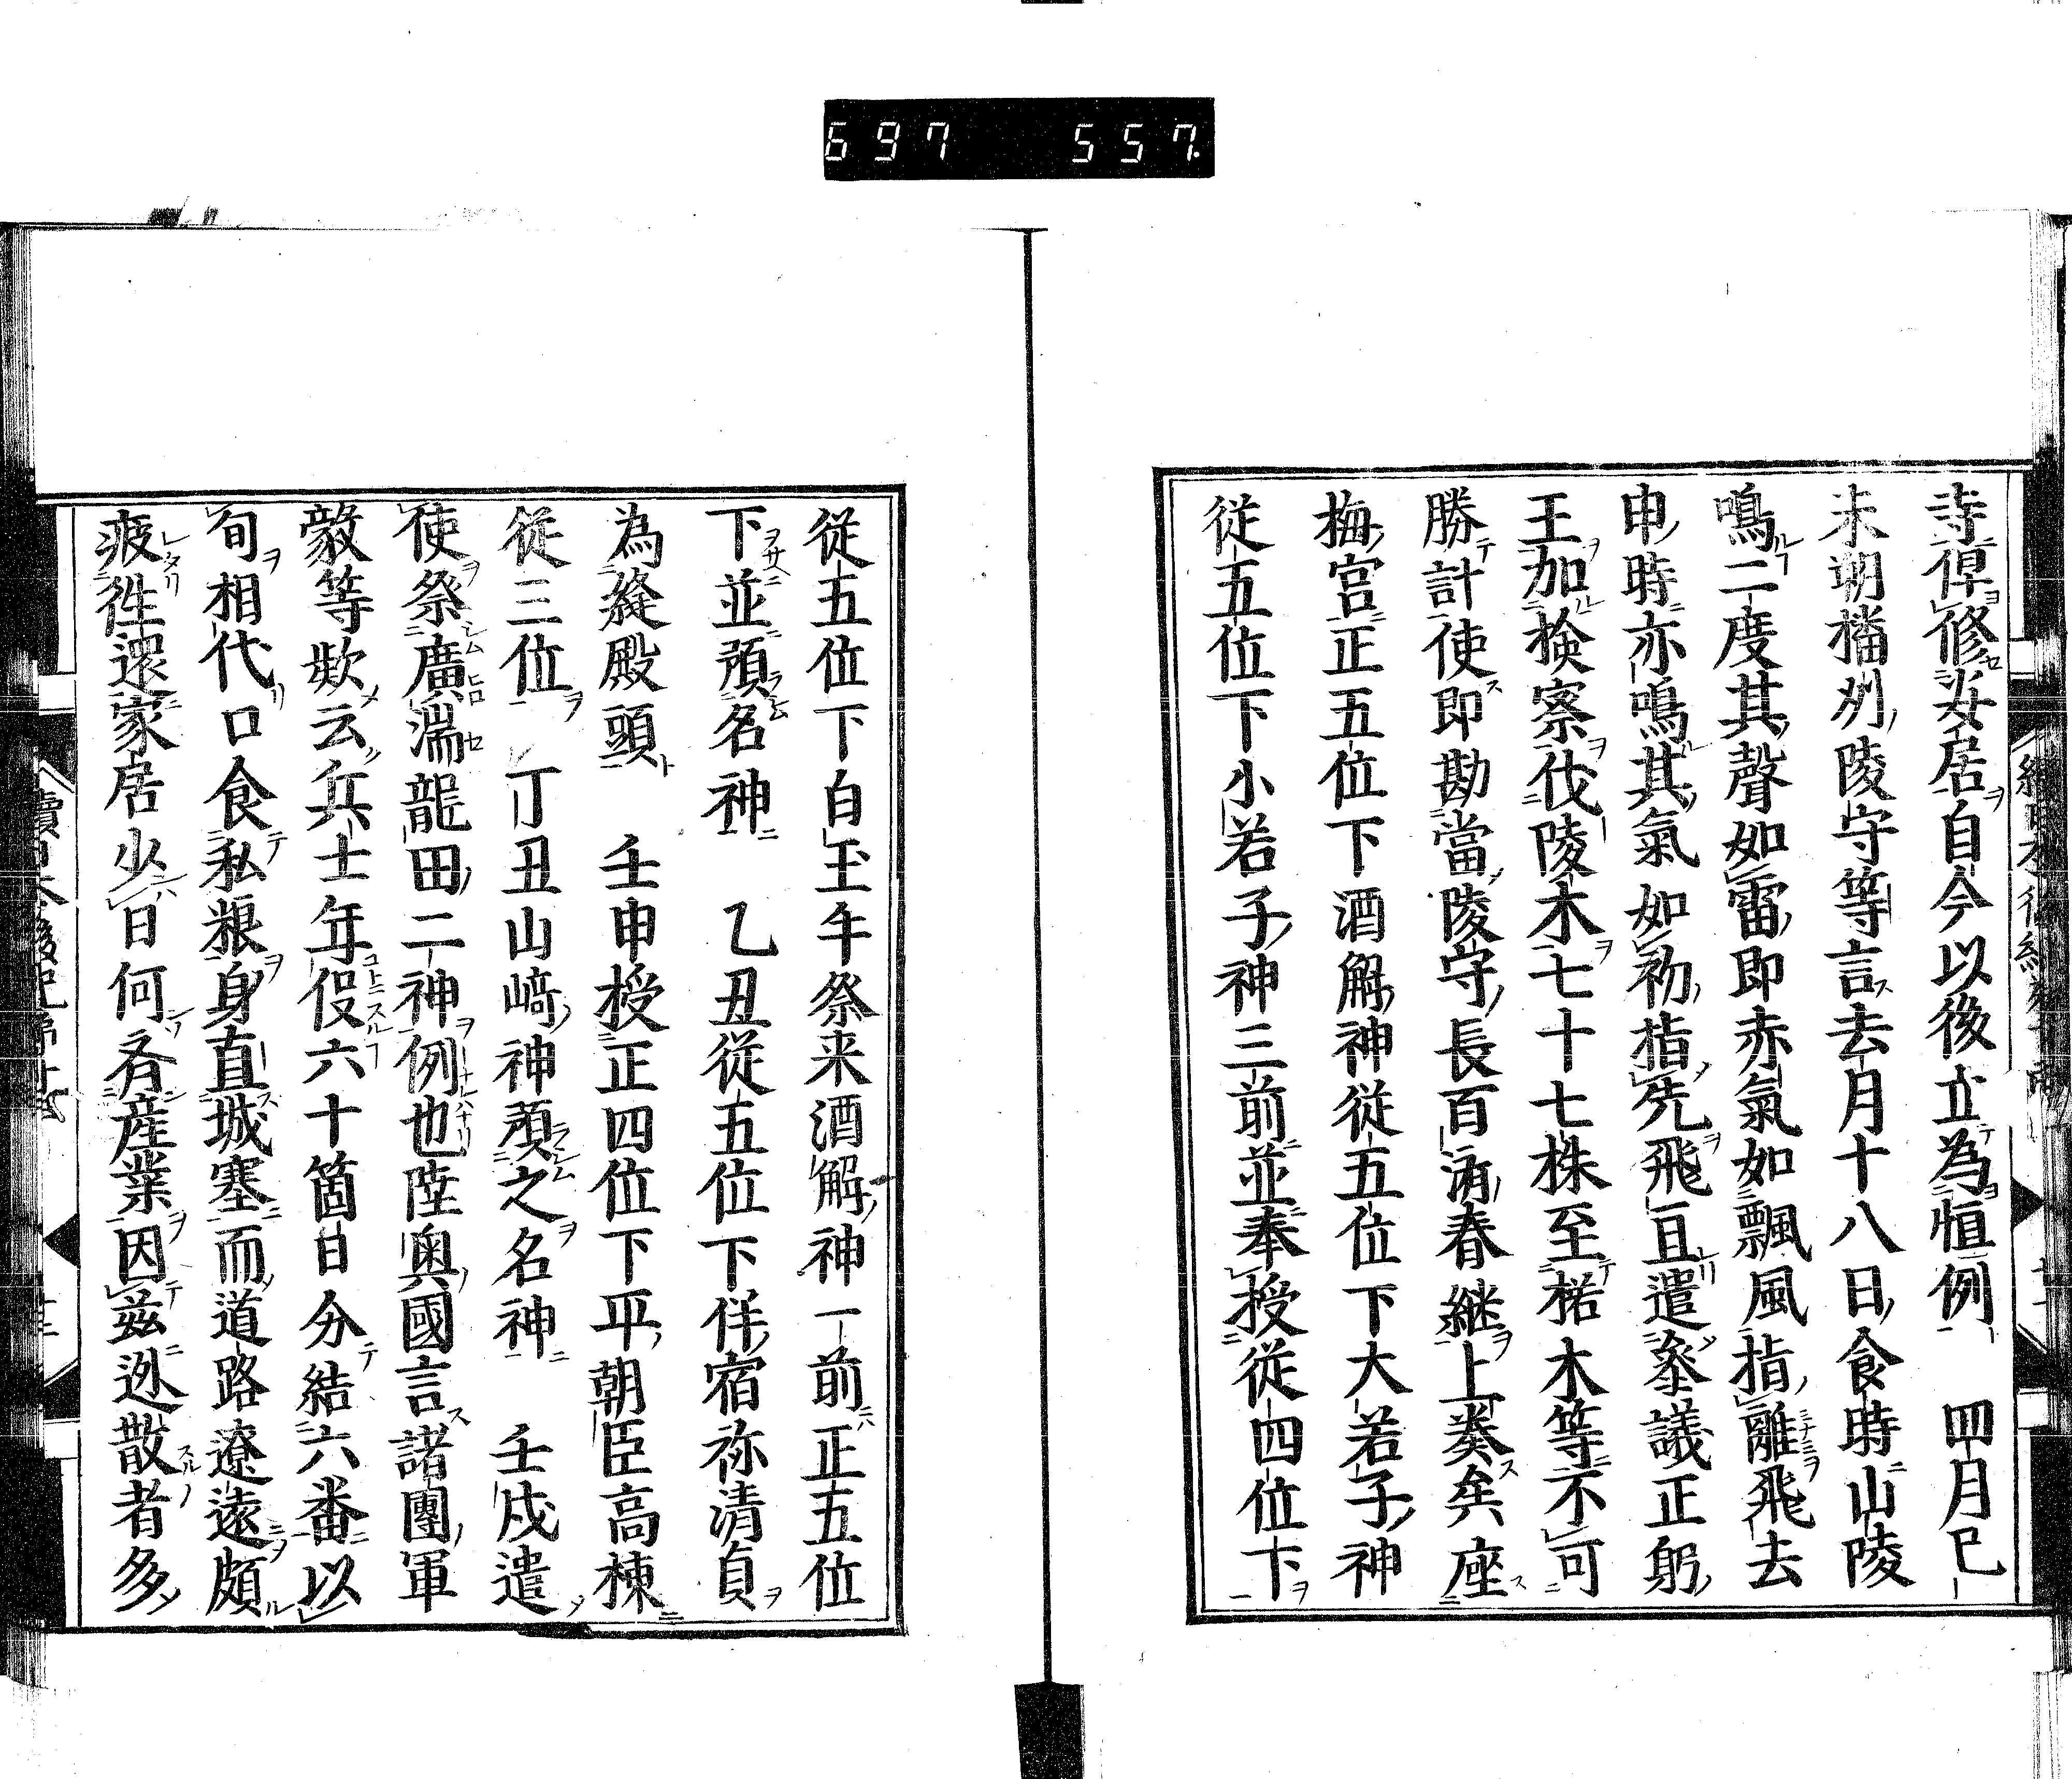 697 557.
寺俾修安居自今以後立為恒例 四月己
未朔楯列陵守等言去月十八日食時山陵
鳴二度其聲如雷即赤氣如飄風指離飛去
申時亦鳴其氣如初指兌飛且遣參議正躬
王加檢察伐陵木七十七株至楉木等不可
勝計便即勘當陵守長百濟春継上奏矣座
梅宮正五位下酒解神從五位下大若子神
從五位下小若子神三前並奉授從四位下
從五位下自玉手祭来酒解神一前正五位
下並預名神 乙丑從五位下伴宿祢清貞
為縫殿頭 壬申授正四位下平朝臣高棟
從三位 丁丑山崎神預之名神 壬戌遣
使祭廣湍龍田二神例也陸奥國言諸團軍
毅等欵云兵士年役六十箇日分結六番以
旬相代口食私粮身直城塞而道路遼遠頗
疲往還家居少日何有産業因茲逃散者多